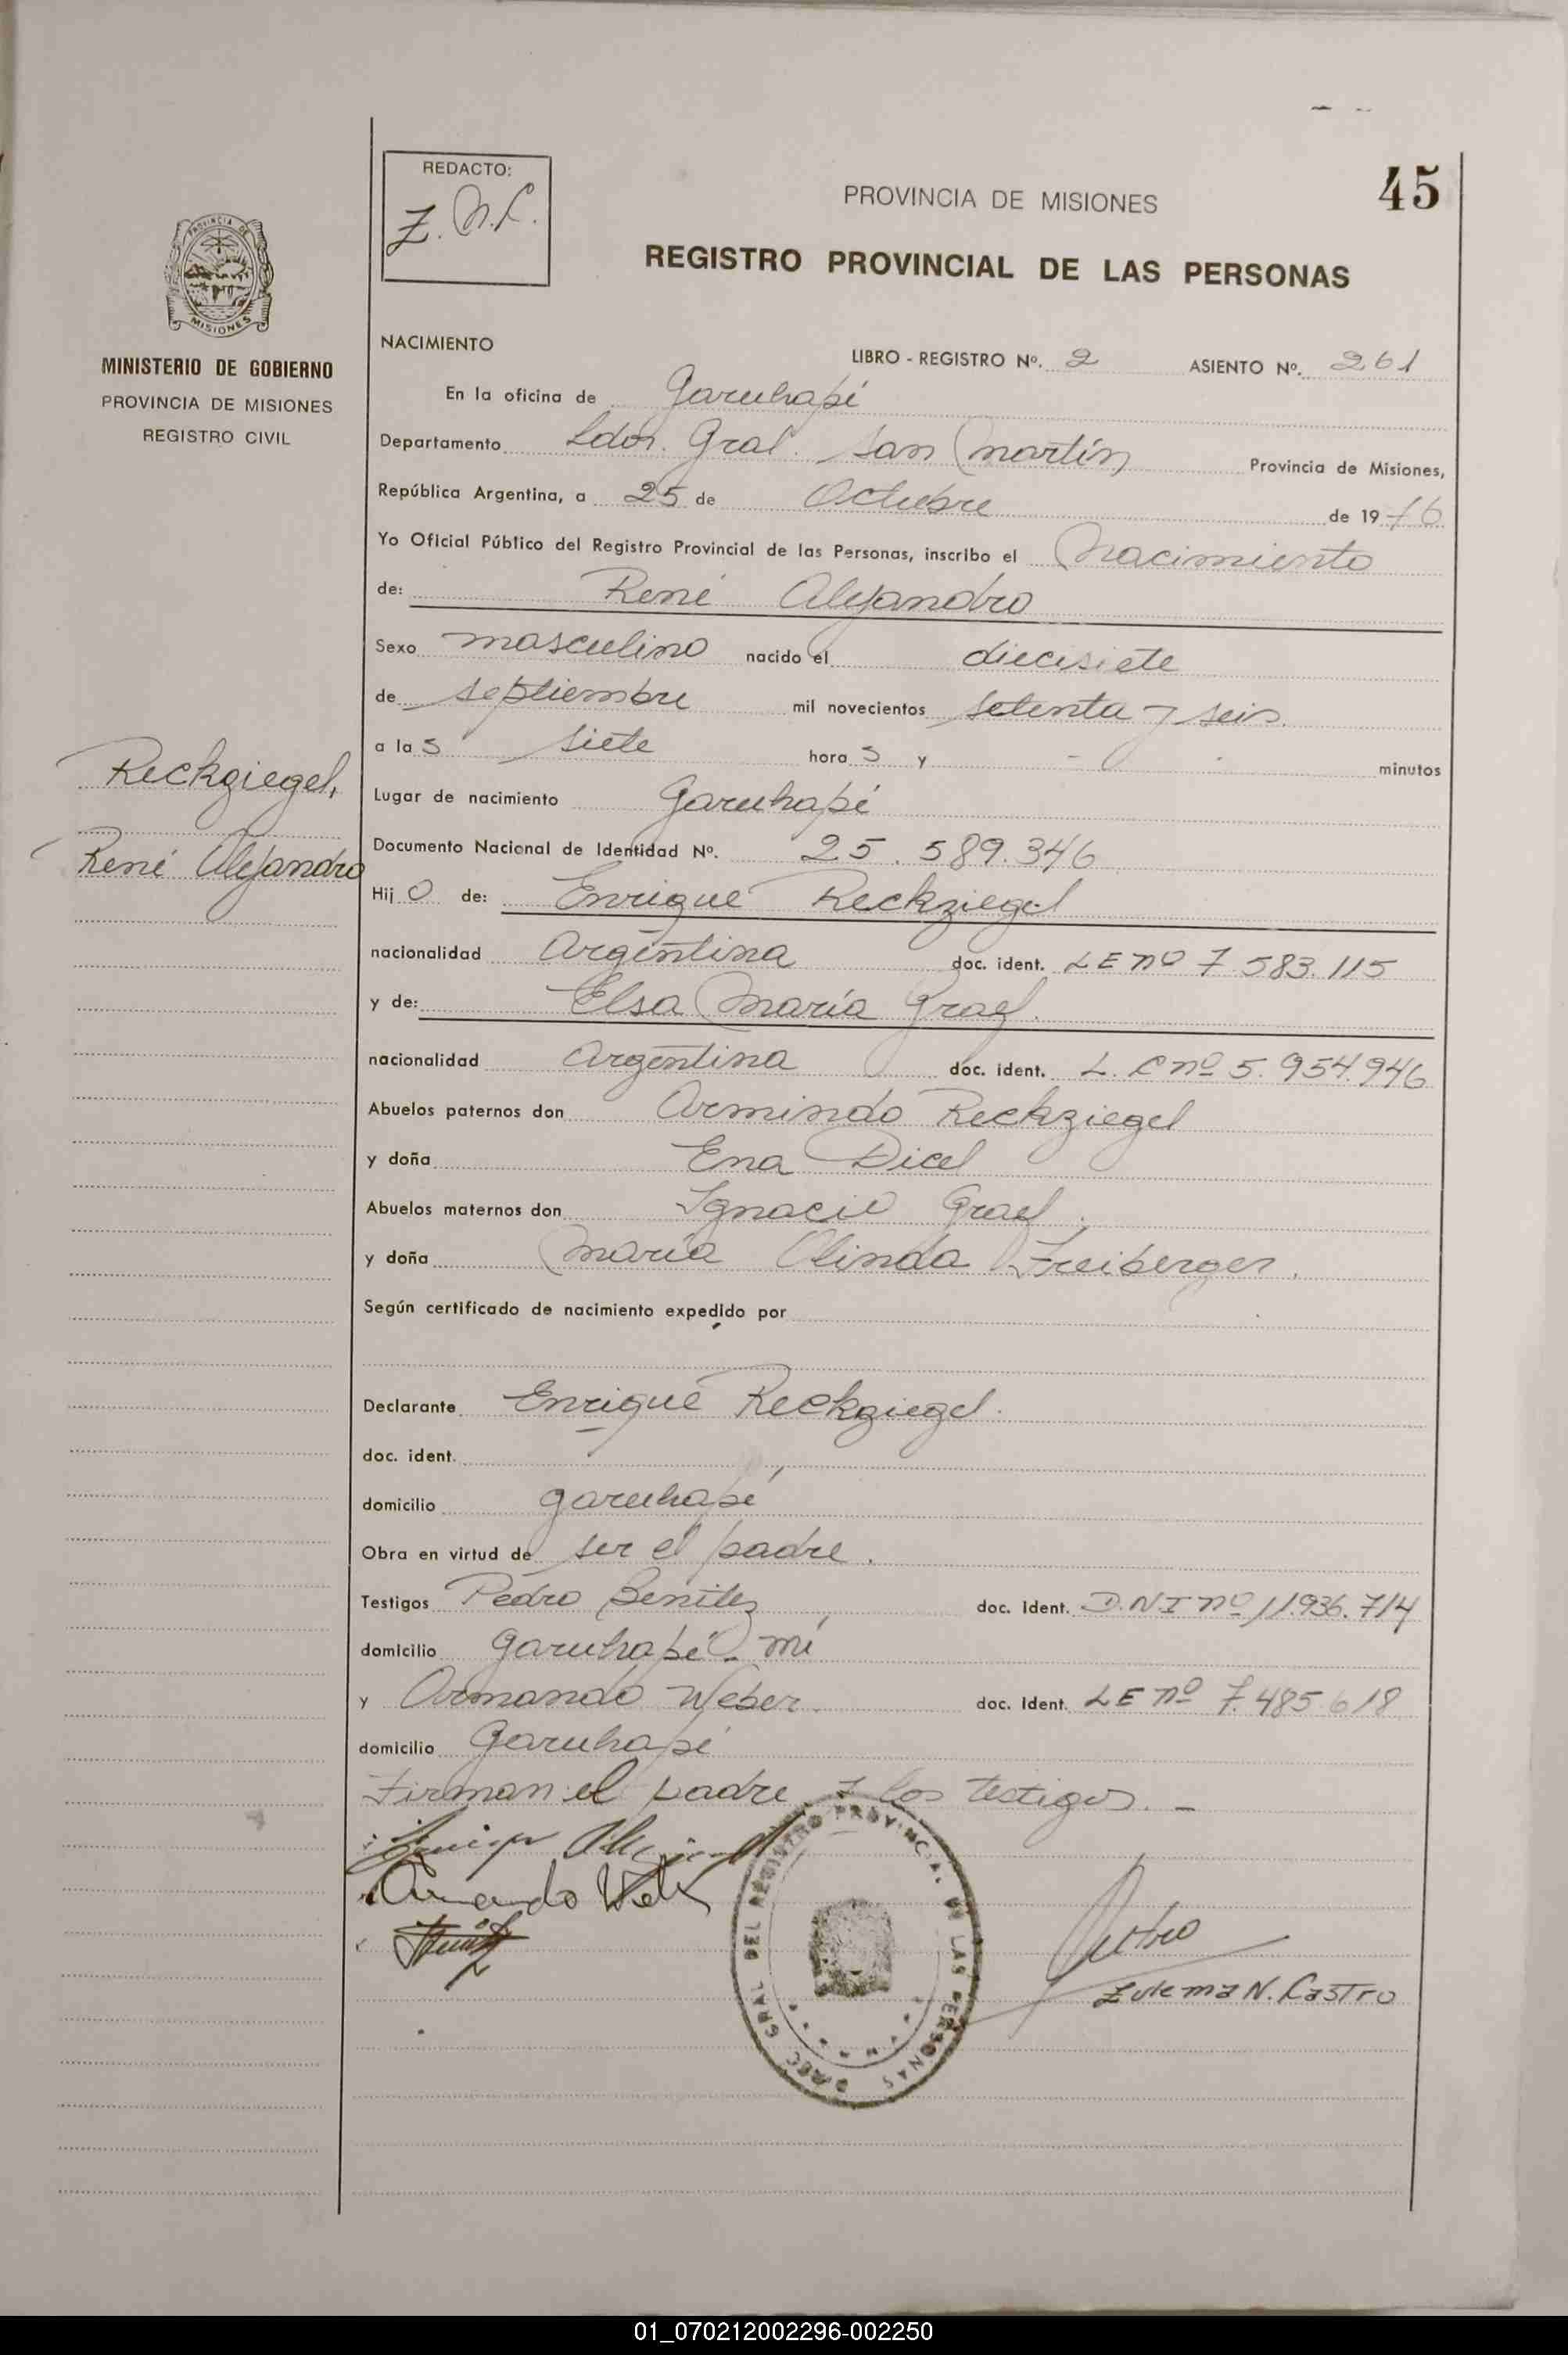 45
REDACTO:
Z. N. C.
PROVINCIA DE MISIONES
REGISTRO PROVINCIAL DE LAS PERSONAS
PROVINCIA DE
MISIONES
MINISTERIO DE GOBIERNO
PROVINCIA DE MISIONES
REGISTRO CIVIL
NACIMIENTO LIBRO - REGISTRO Nº. 2 ASIENTO Nº. 261
En la oficina de Garuhapé
Departamento Ldor. Gral. San Martín Provincia de Misiones,
República Argentina, a 25 de Octubre de 1976
Yo Oficial Público del Registro Provincial de las Personas, inscribo el Nacimiento
de: René Alejandro
Sexo masculino nacido el diecisiete
de septiembre mil novecientos setenta y seis
a las siete horas y - minutos
Reckziegel,
René Alejandro
Lugar de nacimiento Garuhapé
Documento Nacional de Identidad Nº. 25.589.346
Hijo de: Enrique Reckziegel
nacionalidad Argentina doc. ident. LE nº 7 583.115
y de: Elsa María Graef.
nacionalidad Argentina doc. ident. L. C nº 5.954.946
Abuelos paternos don Armindo Reckziegel
y doña Ena Dicel
Abuelos maternos don Ignacio Graef.
y doña María Olinda Freiberger.
Según certificado de nacimiento expedido por
Declarante Enrique Reckziegel.
doc. ident.
domicilio garuhapé
Obra en virtud de ser el padre.
Testigos Pedro Benítez doc. Ident. D.N.I nº 11.936.714
domicilio garuhapé - mí
y Armando Weber doc. Ident. LE nº 7.485.618
domicilio Garuhapé
Firman el padre y los testigos. -
Armando
Zulema N. Castro
DIREC GRAL DEL REGISTRO PROVINCIAL DE LAS PERSONAS
01_070212002296-002250